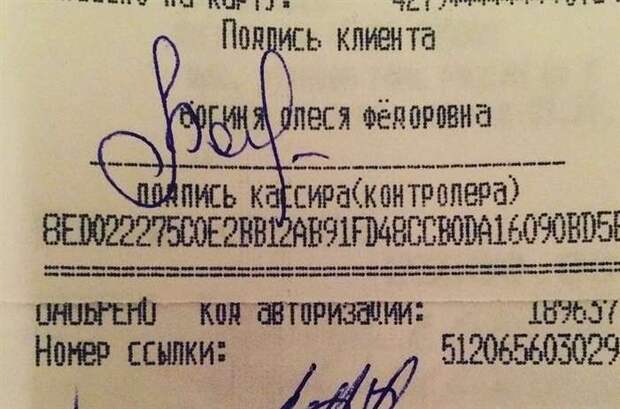 на карту: 4279******
Подпись клиента
Богиня Олеся Фёдоровна
подпись кассира(контролера)
8ED022275C0E2BB12AB91FD48CCB0DA16090BD5
ОДОБРЕНО Код авторизации: 189637
Номер ссылки: 512065603029